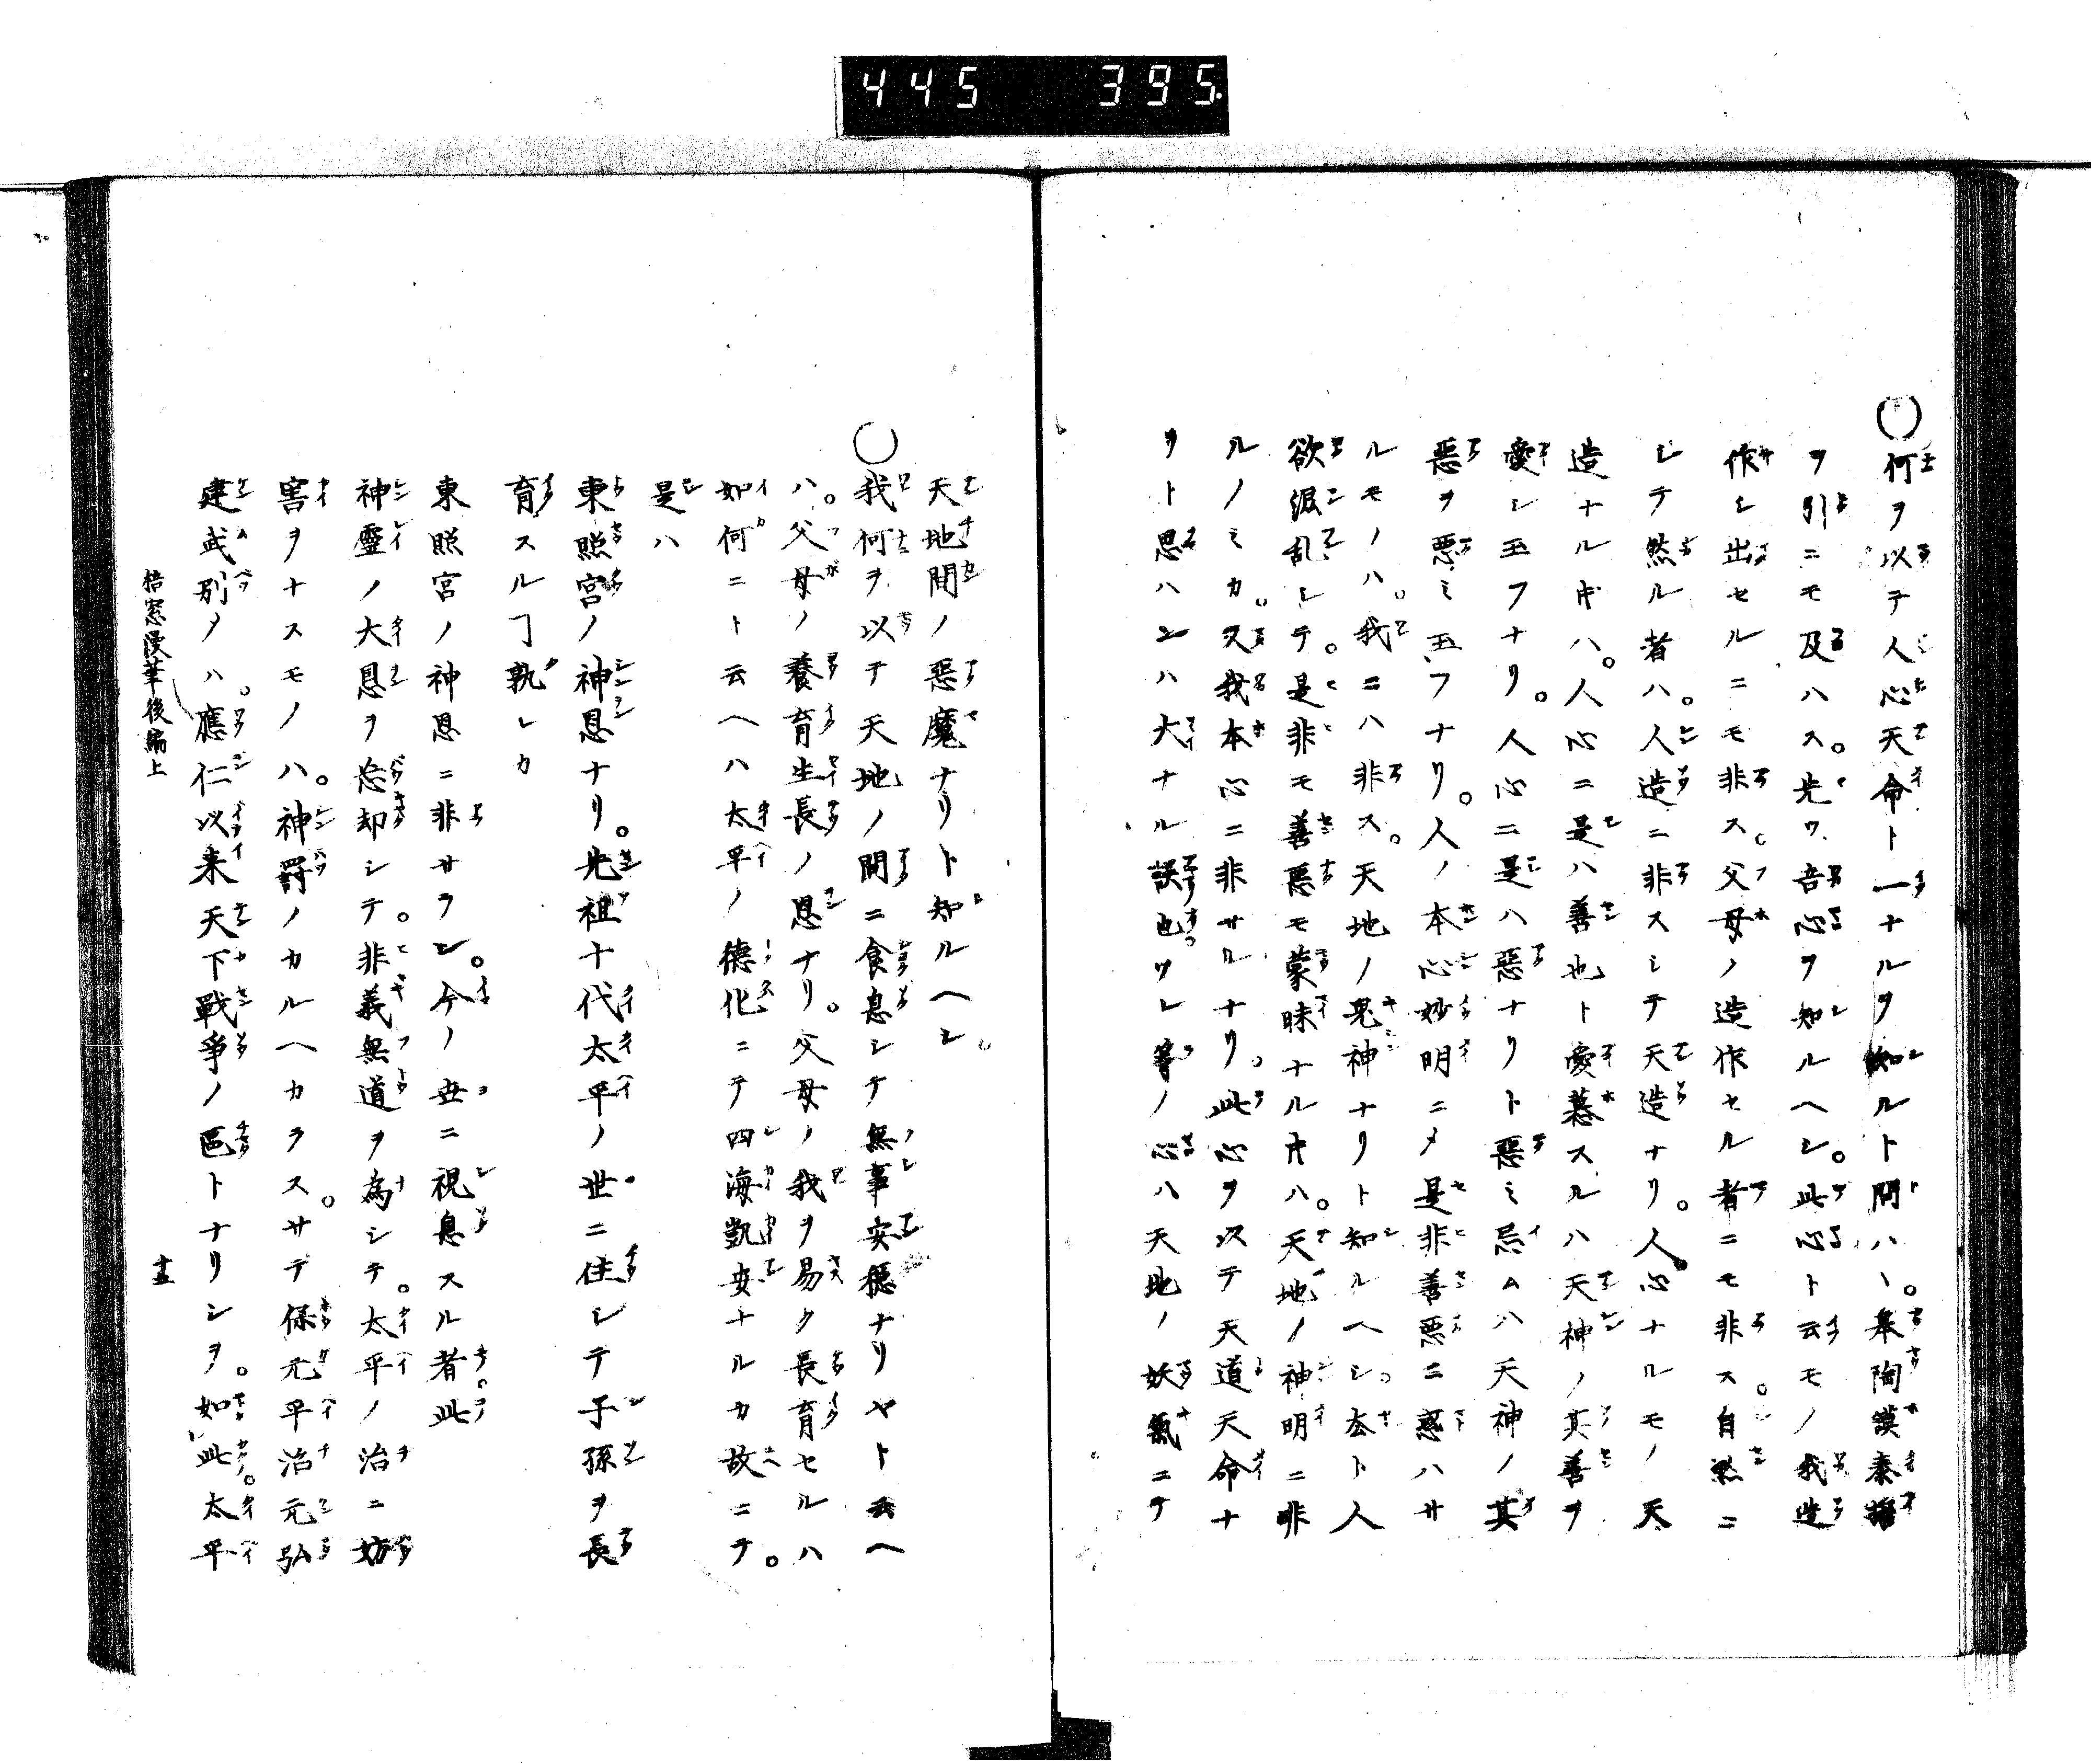 445 395.
〇何ヲ以テ人心天命ト一ナルヲ知ルト問ハヽ。皐陶謨泰誓
ヲ引ニモ及ハス。先ツ吾心ヲ知ルヘシ。此心ト云モノ我造
作シ出セルニモ非ス。父母ノ造作セル者ニモ非ス。自然ニ
シテ然ル者ハ。人造ニ非スシテ天造ナリ。人心ナルモノ天
造ナル𪜈ハ。人心ニ是ハ善也ト愛慕スルハ天神ノ其善ヲ
愛シ玉フナリ。人心ニ是ハ惡ナリト惡ミ忌ムハ天神ノ其
惡ヲ惡ミ玉フナリ。人ノ本心妙明ニ〆是非善惡ニ惑ハサ
ルモノハ。我ニハ非ス。天地ノ鬼神ナリト知ルヘシ。太ト人
欲混乱シテ。是非モ善惡モ蒙昧ナル𪜈ハ。天地ノ神明ニ非
ルノミカ。又我本心ニ非サルナリ。此心ヲ以テ天道天命ナ
リト思ハンハ大ナル誤也ワレ等ノ心ハ天地ノ妖氣ニテ
天地間ノ惡魔ナリト知ルヘシ。
〇我何ヲ以テ天地ノ間ニ食息シテ無事安穏ナリヤト云ヘ
ハ。父母ノ養育生長ノ恩ナリ。父母ノ我ヲ易ク長育セルハ
如何ニト云ヘハ太平ノ德化ニテ四海凱安ナルカ故ニテ。
是ハ
東照宮ノ神恩ナリ。先祖十代太平ノ世ニ住シテ子孫ヲ長
育スルヿ孰レカ
東照宮ノ神恩ニ非サラン。今ノ世ニ視息スル者。此
神靈ノ大恩ヲ忘却シテ。非義無道ヲ為シテ。太平ノ治ニ妨
害ヲナスモノハ。神罸ノカルヘカラス。サテ保元平治元弘
建武別〆ハ。應仁以来天下戰爭ノ區トナリシヲ。如此。太平
梧窓漫筆後編上
十五